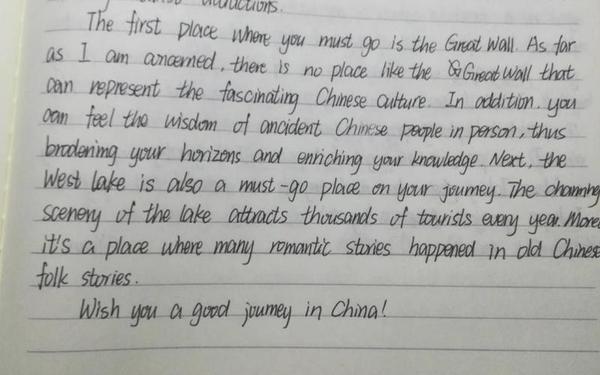 attractions.
The first place where you must go is the Great Wall. As far
as I am concerned, there is no place like the Great Wall that
can represent the fascinating Chinese culture. In addition, you
can feel the wisdom of ancident Chinese people in person, thus
brodening your horizons and enriching your knowledge. Next, the
West lake is also a must-go place on your journey. The charming
scenery of the lake attracts thousands of tourists every year. More
it's a place where many romantic stories happened in old Chinese
folk stories.
Wish you a good journey in China!